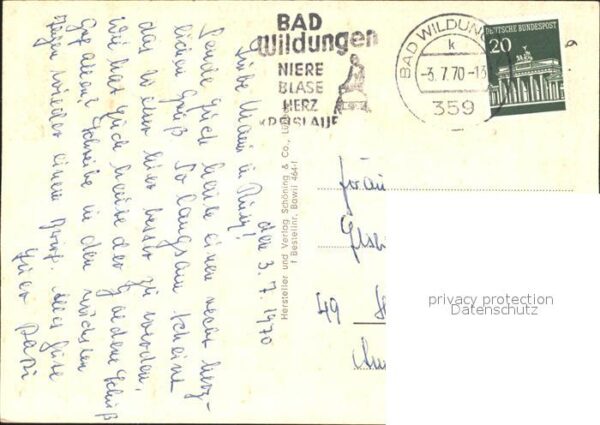 BAD
Wildungen
NIERE
BLASE
HERZ
KREISLAUF
BAD WILDUN
k
-3.7.70-13
359
DEUTSCHE BUNDESPOST
20
den 3.7.1970
Liebe Mami u.
Sende Euch heute einen recht herz-
lichen Gruß. So langsam scheint
das Wetter hier besser zu werden.
Wie hat Euch heute der
gefallen? Schreibe in den nächsten
Tagen wieder einen Brief. Alles Gute
Euer Papi
Hersteller und Verlag Schöning & Co., Lübeck
† Bestellnr. Bawil 464-1
49
privacy protection
Datenschutz